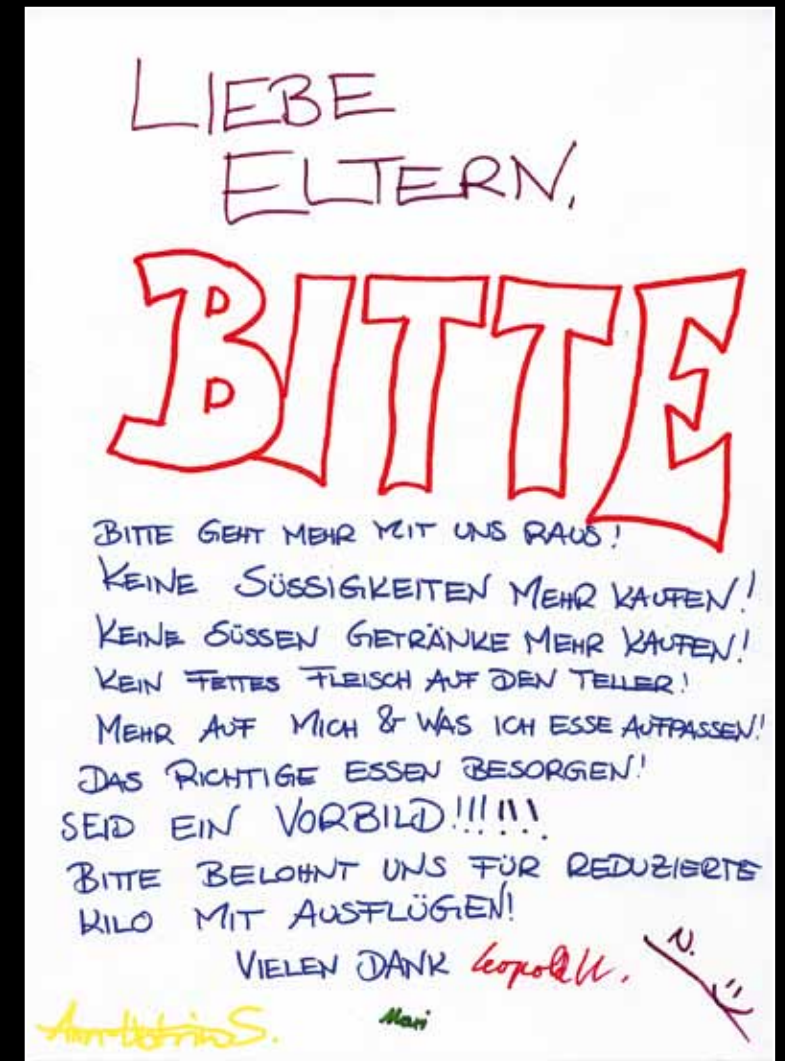 LIEBE
ELTERN,
BITTE
BITTE GEHT MEHR MIT UNS RAUS!
KEINE SÜSSIGKEITEN MEHR KAUFEN!
KEINE SÜSSEN GETRÄNKE MEHR KAUFEN!
KEIN FETTES FLEISCH AUF DEN TELLER!
MEHR AUF MICH & WAS ICH ESSE AUFPASSEN!
DAS RICHTIGE ESSEN BESORGEN!
SEID EIN VORBILD!!!!!!
BITTE BELOHNT UNS FÜR REDUZIERTE
KILO MIT AUSFLÜGEN!
VIELEN DANK Leopold W.
N.
Mari